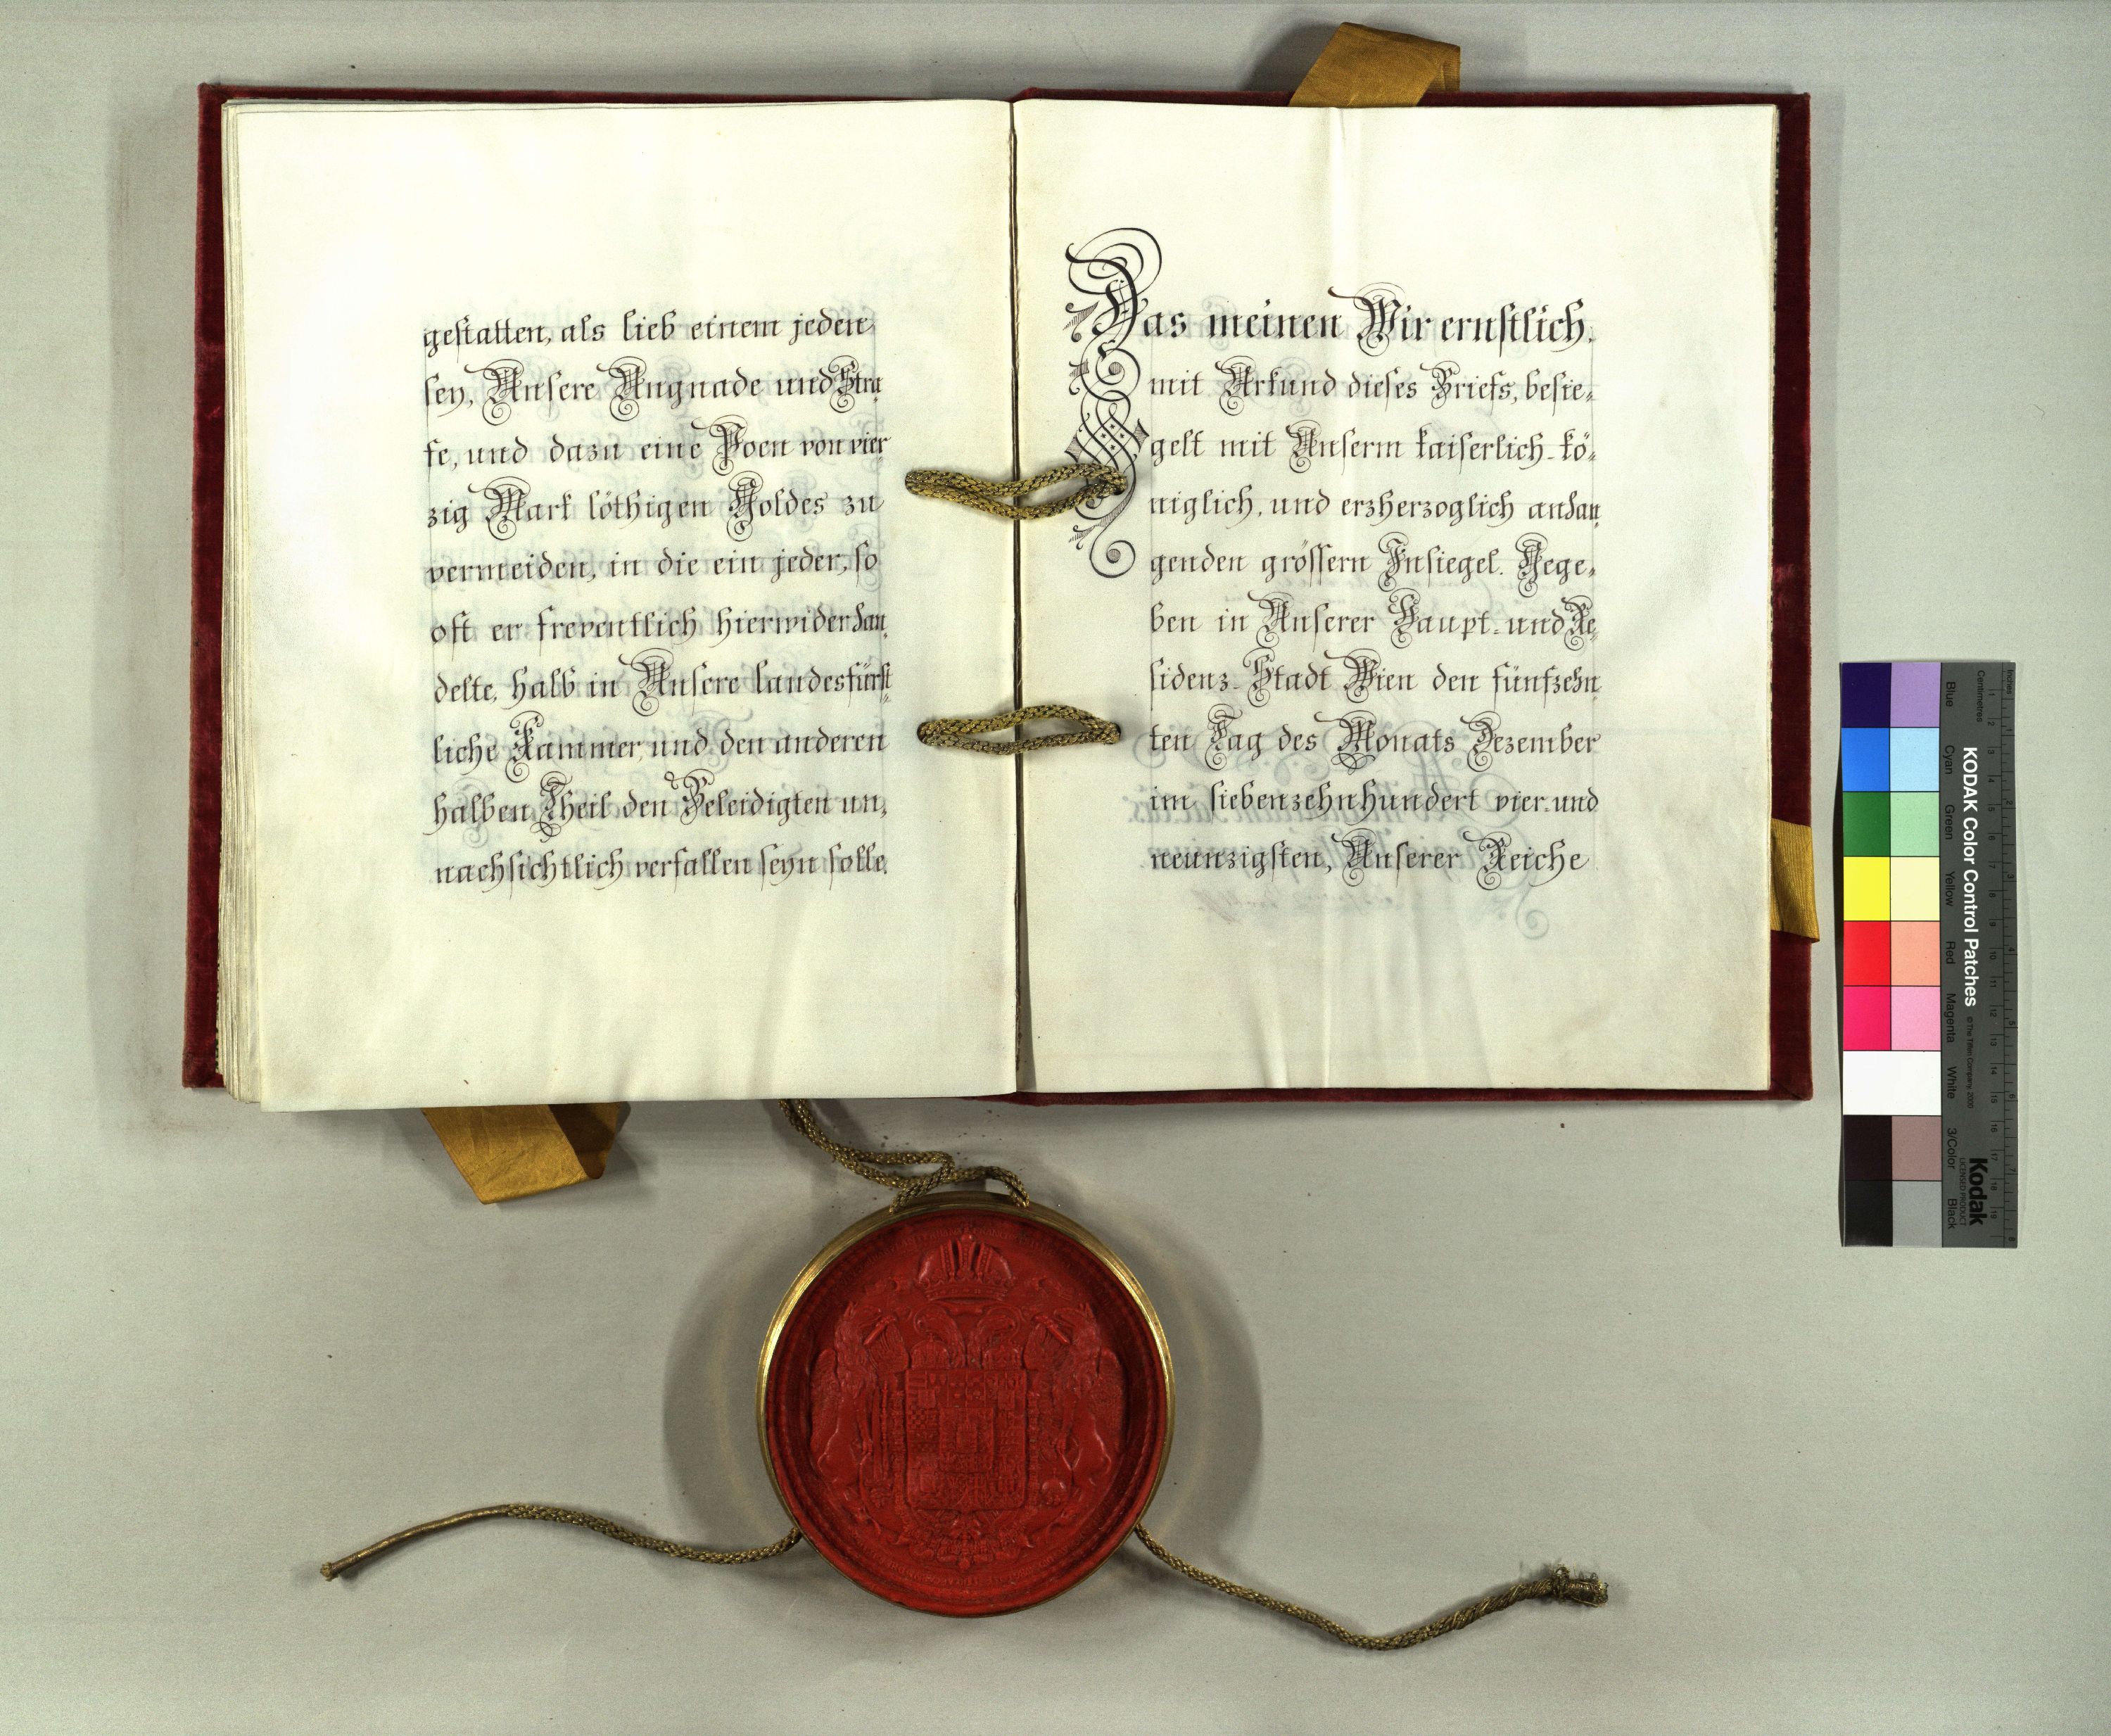 gestatten, als lieb einem jeden
sey, Unsere Ungnade und Stra„
fe, und dazu eine Poen von vier„
zig Mark löthigen Goldes zu
vermeiden, in die ein jeder, so
oft er freventlich hierwider han„
delte, halb in Unsere landesfürst„
liche Kammer, und den anderen
halben Theil den Beleidigten un„
nachsichtlich verfallen seyn solle.
Das meinen Wir ernstlich.
mit Urkund dieses Briefs, besie„
gelt mit Unserm kaiserlich-kö„
niglich, und erzherzoglich anhan„
genden grössern Insiegel. Gege„
ben in Unserer Haupt- und Re„
sidenz-Stadt Wien den fünfzehn„
ten Tag des Monats Dezember
im siebenzehnhundert vier und
neunzigsten, Unserer Reiche
KODAK Color Control Patches
©The Tiffen Company, 2000
Kodak
LICENSED PRODUCT
Blue
Cyan
Green
Yellow
Red
Magenta
White
3/Color
Black
Inches
Centimetres
1 2 3 4 5 6 7 8 9 10 11 12 13 14 15 16 17 18 19